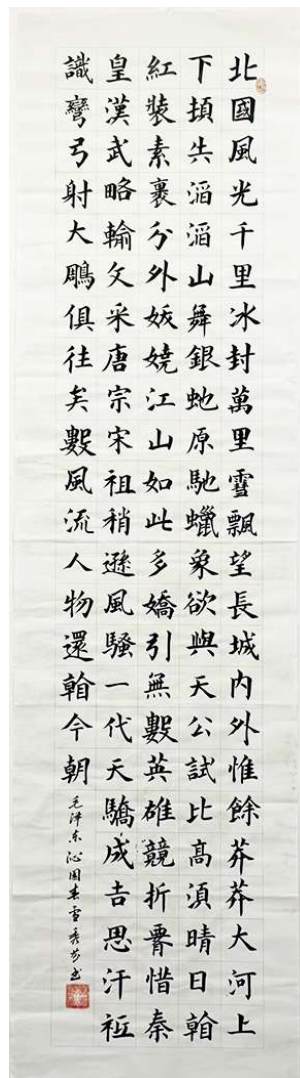 北國風光千里冰封萬里雪飄望長城內外惟餘莽莽大河上
下頓失滔滔山舞銀虵原馳蠟象欲與天公試比高須晴日看
紅裝素裹分外妖嬈江山如此多嬌引無數英雄競折腰惜秦
皇漢武略輸文采唐宗宋祖稍遜風騷一代天驕成吉思汗祗
識彎弓射大鵰俱往矣數風流人物還看今朝
毛澤东沁園春雪秀芳书